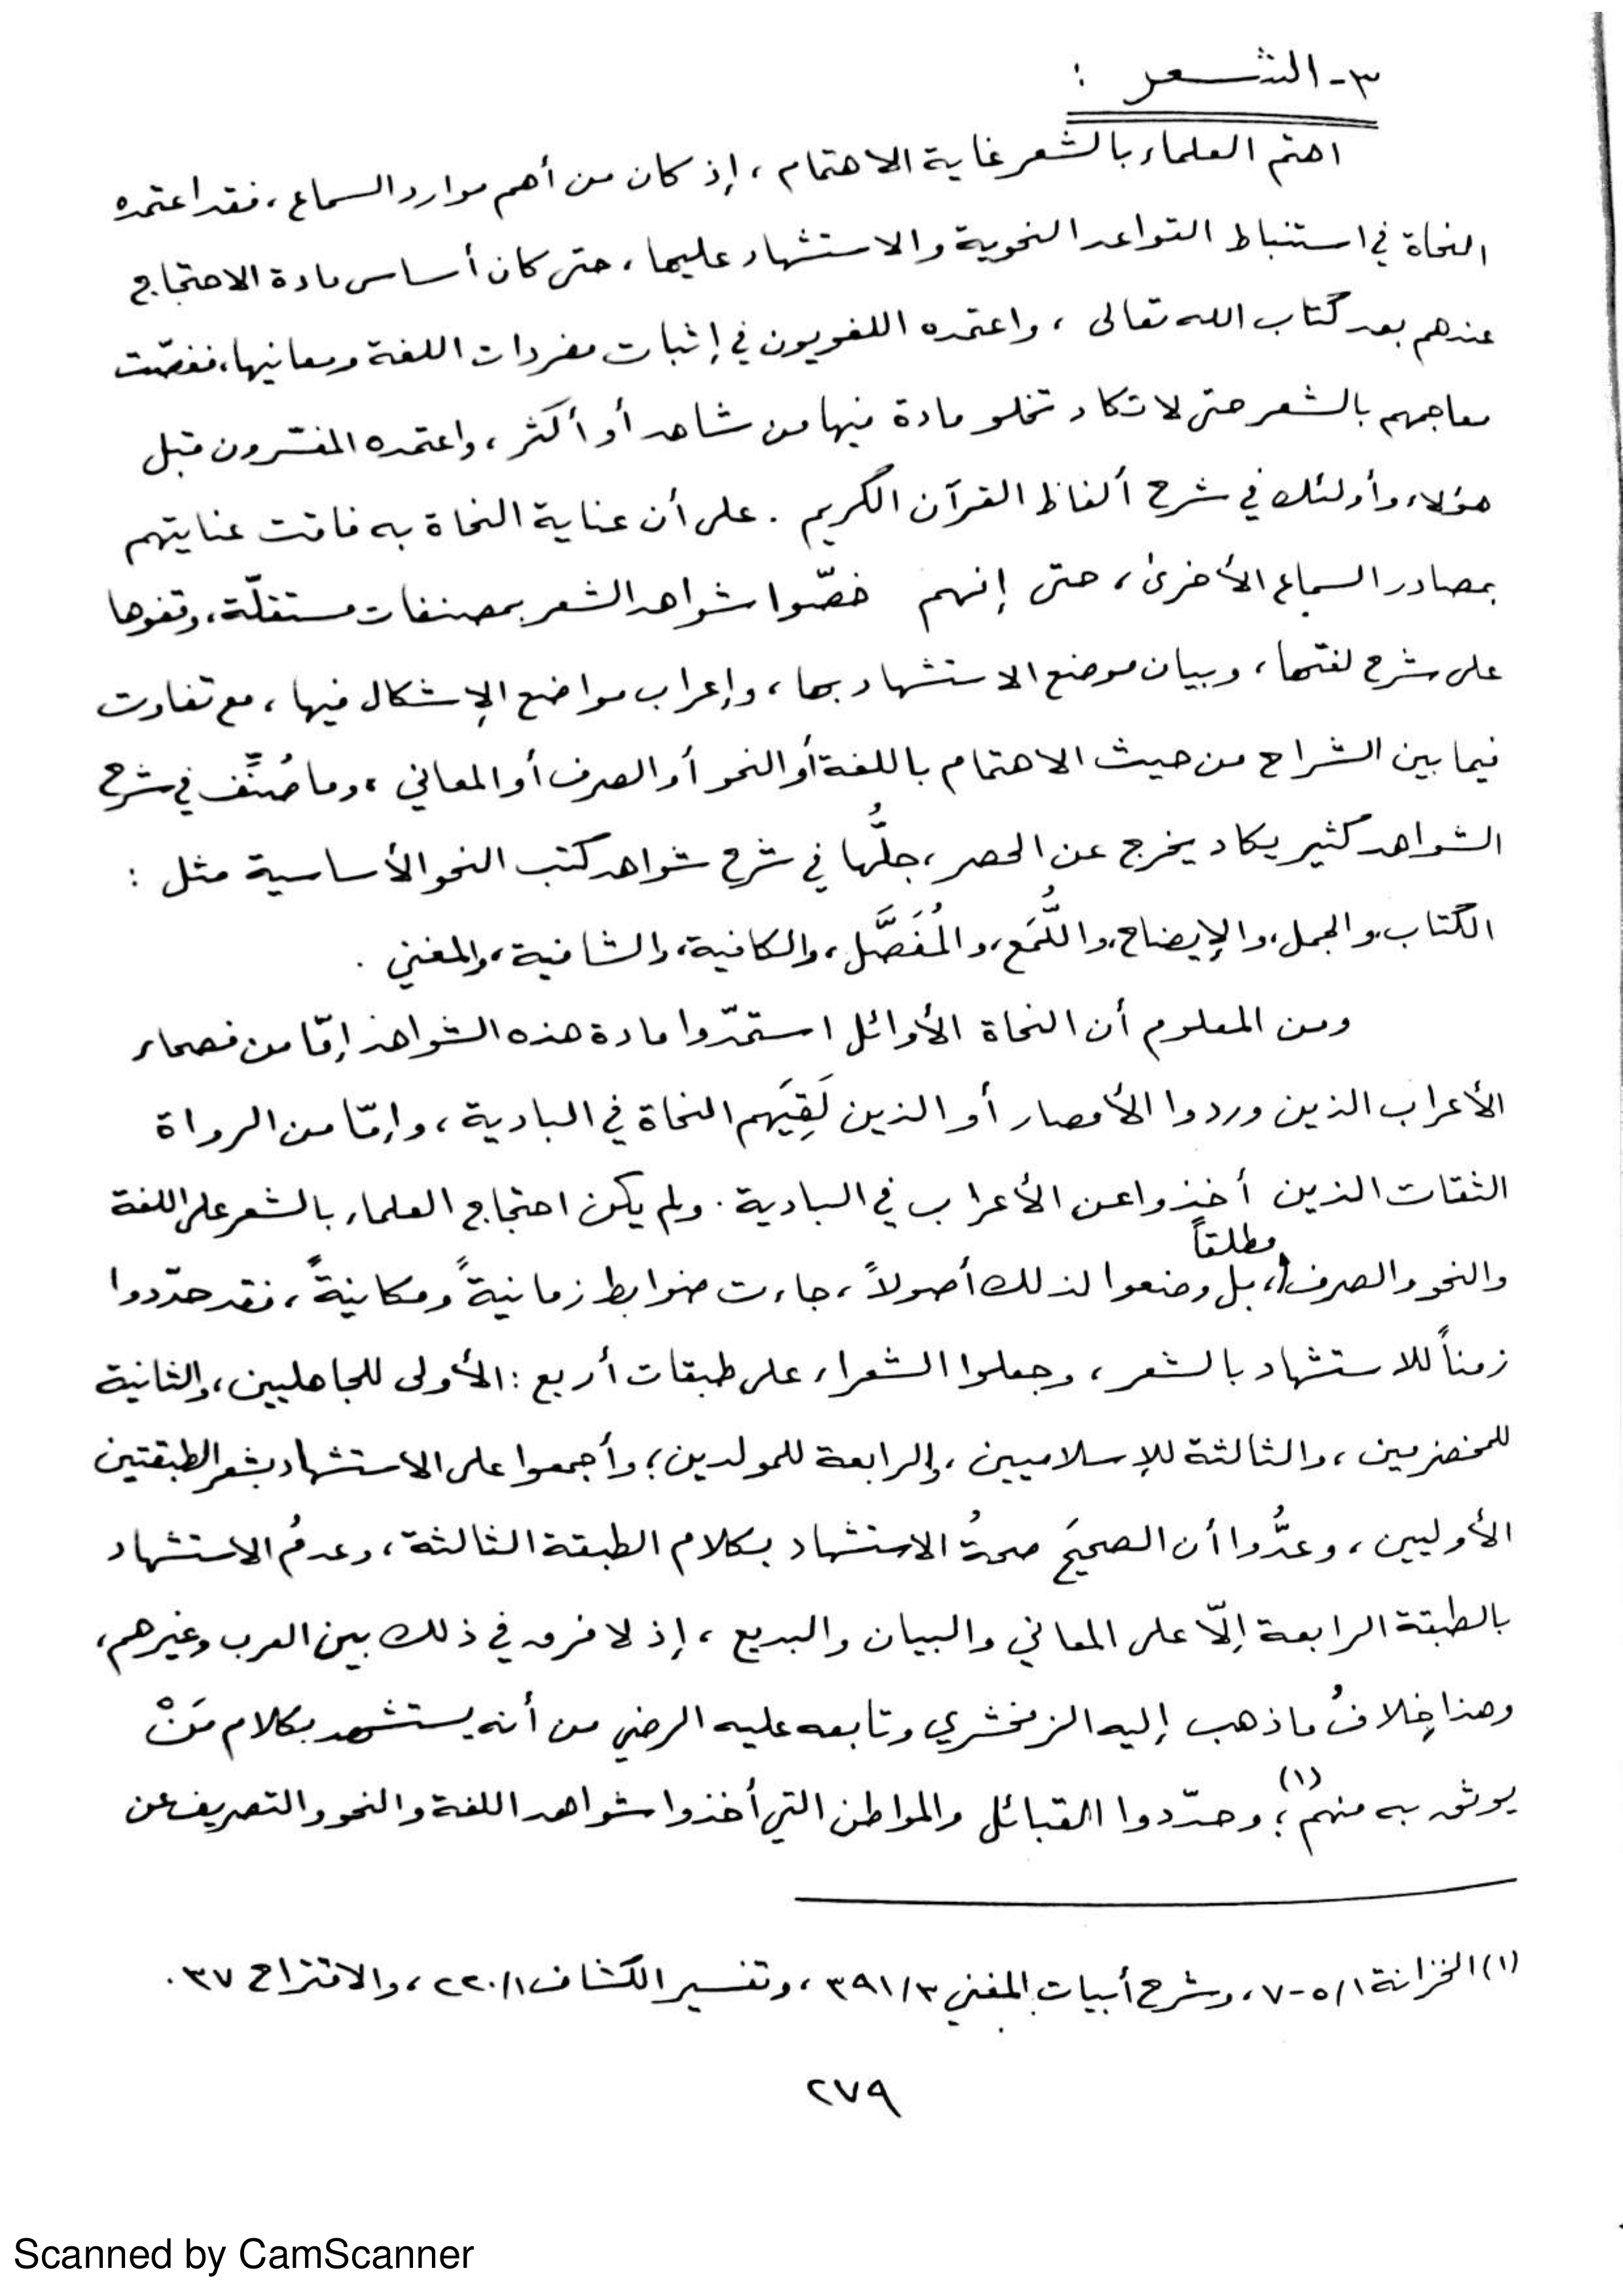 ٣- الشعر :
اهتم العلماء بالشعر غاية الاهتمام ، إذ كان من أهم موارد السماع ، فقد اعتمده
النحاة في استنباط القواعد النحوية والاستشهاد عليها ، حتى كان أساس مادة الاحتجاج
عندهم بعد كتاب الله تعالى ، واعتمده اللغويون في إثبات مفردات اللغة ومعانيها ، فغصّت
معاجمهم بالشعر حتى لا تكاد تخلو مادة فيها من شاهد أو أكثر ، واعتمده المفسّرون قبل
هؤلاء وأولئك في شرح ألفاظ القرآن الكريم . على أن عناية النحاة به فاقت عنايتهم
بمصادر السماع الأخرى ، حتى إنهم خصّوا شواهد الشعر بمصنفات مستقلّة ، وقفوها
على شرح لغتها ، وبيان موضع الاستشهاد بها ، وإعراب مواضع الإشكال فيها ، مع تفاوت
فيما بين الشراح من حيث الاهتمام باللغة أو النحو أو الصرف أو المعاني ، وما صُنِّف في شرح
الشواهد كثير يكاد يخرج عن الحصر ، جلُّها في شرح شواهد كتب النحو الأساسية مثل :
الكتاب ، والجمل ، والإيضاح ، واللُّمَع ، والمُفَصَّل ، والكافية ، والشافية ، والمغني .
ومن المعلوم أن النحاة الأوائل استمدّوا مادة هذه الشواهد إمّا من فصحاء
الأعراب الذين وردوا الأمصار أو الذين لَقِيَهم النحاة في البادية ، وإمّا من الرواة
الثقات الذين أخذوا عن الأعراب في البادية . ولم يكن احتجاج العلماء بالشعر على اللغة
والنحو والصرف مطلقاً ، بل وضعوا لذلك أصولاً ، جاءت ضوابط زمانيةً ومكانيةً ، فقد حدّدوا
زمناً للاستشهاد بالشعر ، وجعلوا الشعراء على طبقات أربع : الأولى للجاهليين ، والثانية
للمخضرمين ، والثالثة للإسلاميين ، والرابعة للمولدين ؛ وأجمعوا على الاستشهاد بشعر الطبقتين
الأوليين ، وعدُّوا أن الصحيحَ صحةُ الاستشهاد بكلام الطبقة الثالثة ، وعدمُ الاستشهاد
بالطبقة الرابعة إلّا على المعاني والبيان والبديع ، إذ لا فرق في ذلك بين العرب وغيرهم ،
وهذا خِلافُ ما ذهب إليه الزمخشري وتابعه عليه الرضي من أنه يستشهد بكلام مَنْ
يوثق به منهم (١) ؛ وحدّدوا القبائل والمواطن التي أخذوا شواهد اللغة والنحو والتصريف عن
(١) الخزانة ١/ ٥-٧ ، وشرح أبيات المغني ٣/ ٣٩١ ، وتفسير الكشاف ١/ ٢٢٠ ، والاقتراح ٣٧ .
٢٧٩
Scanned by CamScanner